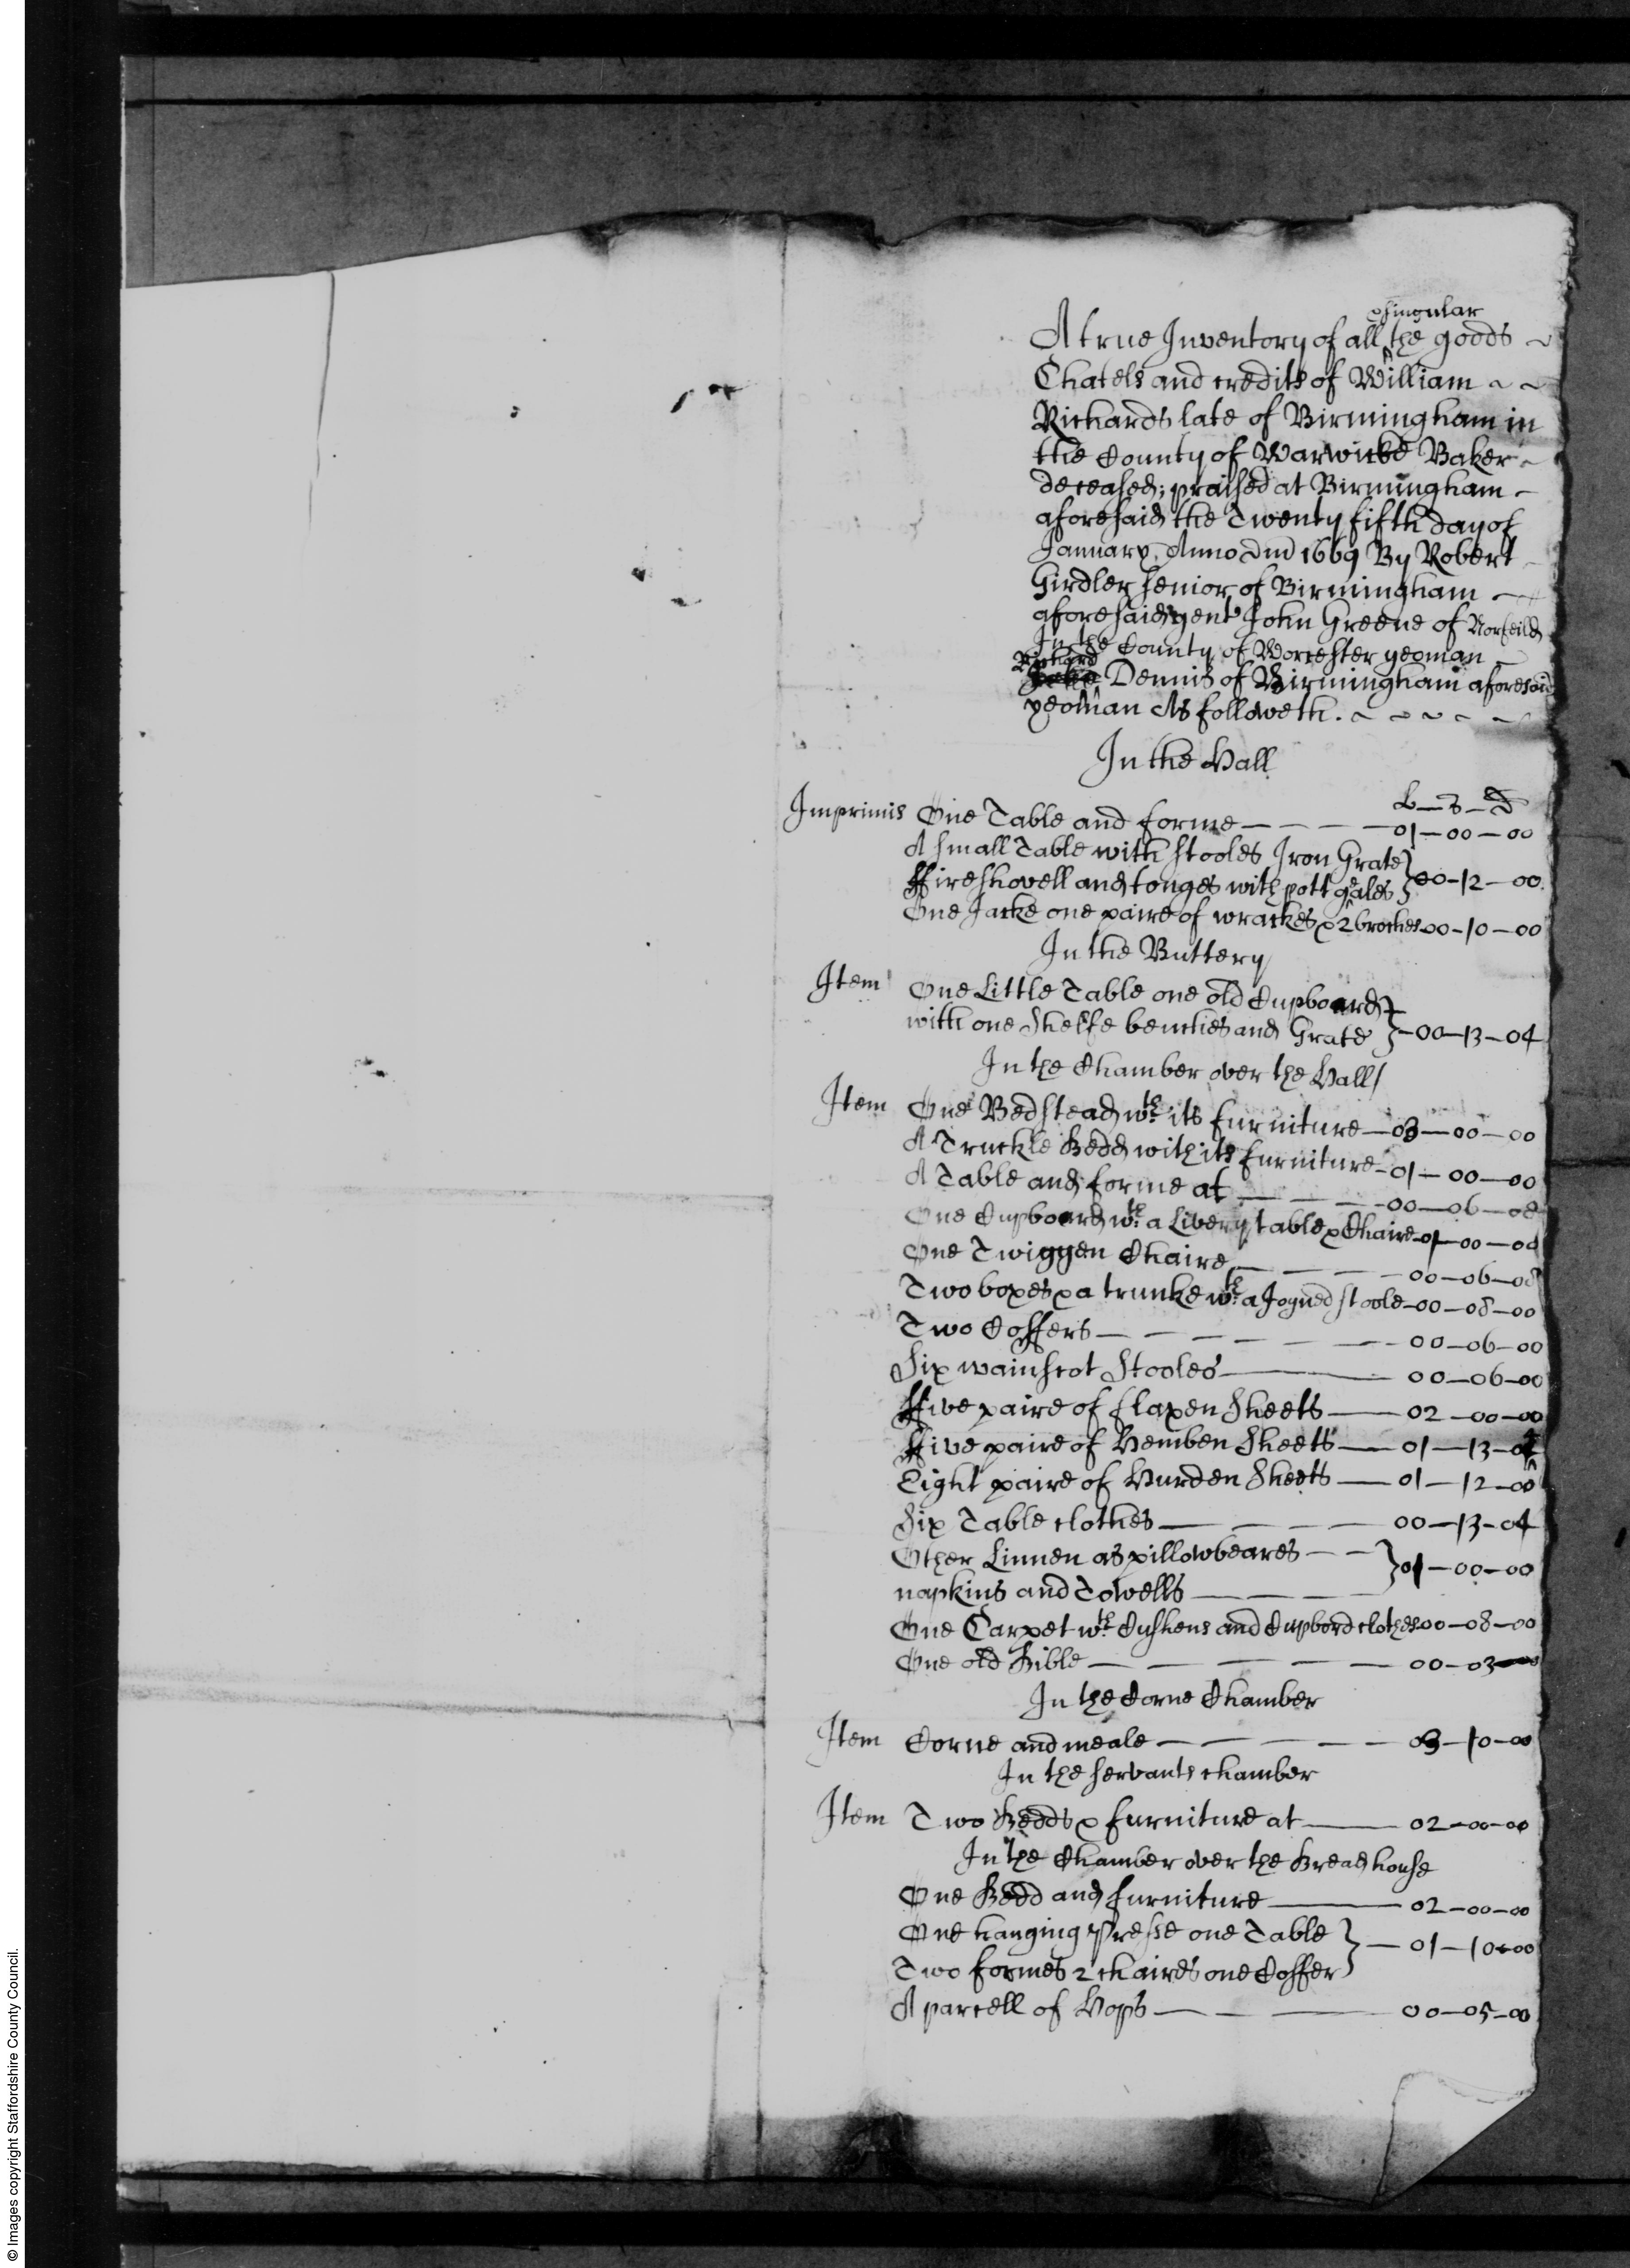 & singular
A true Inventory of all the goods
Chatels and credits of William
Richards late of Birmingham in
the County of Warwicke Baker
deceased; praised at Birmingham
aforesaid the Twenty fifth day of
January Anno Dni 1669 By Robert
Girdler senior of Birmingham
aforesaid gent John Greene of Norfeild
In the County of Worcester yeoman
Richard
Dennis of Birmingham aforesaid
yeoman As followeth.
In the Hall
L — s — d
Imprimis One Table and forme — 01 — 00 — 00
A small Table with stooles Iron Grate
ffireshovell and tonges with pott gales } 00 - 12 — 00
One Jacke one paire of wrackes & 2 broches 00 - 10 — 00
In the Buttery
Item One Little Table one old Cupboard
with one Shelfe benches and Grate } - 00 — 13 — 04
In the Chamber over the Hall
Item One Bedstead wth its furniture — 03 — 00 — 00
A Truckle Bedd with its furniture - 01 — 00 — 00
A Table and forme at — 00 — 06 — 08
One Cupboard wth a Livery table & Chaire - 01 — 00 — 00
One Twiggen Chaire — 00 — 06 — 08
Two boxes & a trunke wth a Joyned stoole - 00 — 08 — 00
Two Coffers — 00 — 06 — 00
Six wainscot Stooles — 00 — 06 — 00
ffive paire of flaxen Sheets — 02 — 00 — 00
ffive paire of Hemben Sheets — 01 — 13 — 04
Eight paire of Hurden Sheets — 01 — 12 — 00
Six Table clothes — 00 — 13 — 04
Other Linnen as pillowbeares
napkins and Towells — } 01 — 00 — 00
One Carpet wth Cushens and Cupbord clothes 00 — 08 — 00
One old Bible — 00 — 03 — 00
In the Corne Chamber
Item Corne and meale — 03 — 10 — 00
In the servants chamber
Item Two Bedds & furniture at — 02 — 00 — 00
In the Chamber over the Bread house
One Bedd and furniture — 02 — 00 — 00
One hanging Presse one Table
Two formes 2 chaires one Coffer } — 01 — 10 — 00
A parcell of Hops — 00 — 05 — 00
© Images copyright Staffordshire County Council.